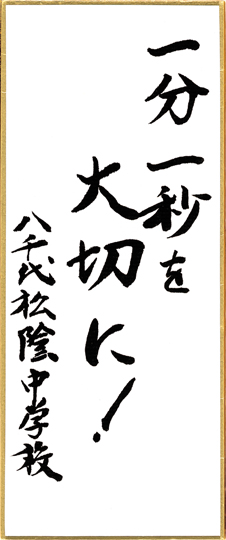 一分一秒を
大切に！
八千代松陰中学校